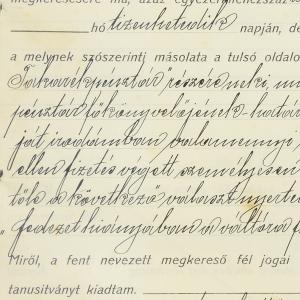 megkeresésére ma, azaz egyezerkilencszáz
hó tizenhetedik napján, de
a melynek szószerinti másolata a tulsó oldalo
Takarékpénztár részére neki, mi
pénztár főkönyvelőjének - hatá
ját irodámban bemenni,
ellen fizetés végett személyesen
tőle a következő választ nyerte
„fedezet hiányában a váltóra f
Miről, a fent nevezett megkereső fél jogai
tanusitványt kiadtam.